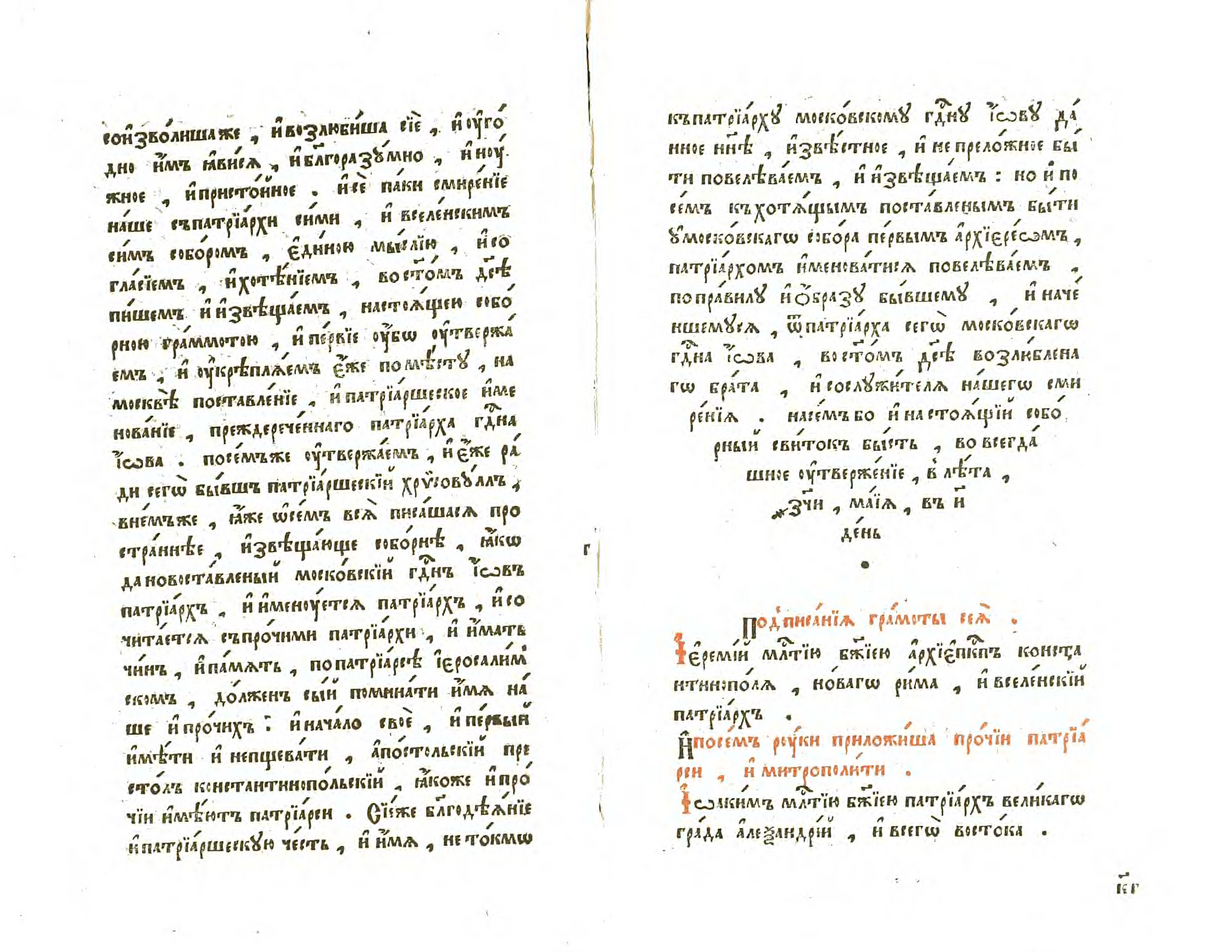 соизво́лишаже , и҆возлюби́ша сїѐ , и҆ оу҆го́
дно и҆̀мъ ꙗ҆ви́сѧ , и҆бл҃горазꙋ́мно , и҆ ноу́
жное , и҆присто́йное . и҆ сѐ па́ки смире́нїе
на́ше съпатрїа́рхи си́ми , и҆ вселе́нскимъ
си́мъ собо́ромъ , є҆ди́ною мы́слїю , и҆ со
гла́сїемъ , и҆хотѣ́нїемъ , во ст҃о́мъ дс҃ѣ
пи́шемъ и҆ и҆звѣща́емъ , настоѧ́щею собо́
рною гра́ммотою , и҆ пе́рвїе оу҆́бѡ оу҆твержа́
емъ , и҆ оу҆крѣплѧ́емъ є҆́же помѣ́стꙋ , на
москвѣ̀ поставле́нїе , и҆патрїа́ршеское и҆ме
нова́нїе , преждерече́ннаго патрїа́рха гд҃на
і҆́ѡва . посе́мъже оу҆твержа́емъ , и҆ є҆́же ра́
ди сегѡ̀ бы́вшъ патрїа́ршескїй хрѷсовꙋ́ллъ ,
вне́мъже , ꙗ҆́же ѡ҆се́мъ всѧ̀ писа́шасѧ про
стра́ннѣе , и҆звѣща́юще собо́рнѣ , ꙗ҆́кѡ
да новоста́вленый моско́вскїй гд҃нъ і҆́ѡвъ
патрїа́рхъ , и҆ и҆мену́етсѧ патрїа́рхъ , и҆ со
чита́етсѧ съпро́чими патрїа́рхи , и҆ и҆́мать
чи́нъ , и҆па́мѧть , попатрїа́рсѣ і҆еросали́м
скомъ , до́лженъ сы́й помина́ти и҆́мѧ на́
ше и҆ про́чихъ : и҆ нача́ло своѐ , и҆ пе́рвый
и҆мѣ́ти и҆ непщева́ти , а҆по́стольскїй пре
сто́лъ константинопо́льскїй , ꙗ҆́коже и҆ про́
чїи и҆мѣ́ютъ патрїа́рси . Сїе́же бл҃годѣѧ́нїе
и҆ патрїа́ршескꙋю че́сть , и҆ и҆́мѧ , не то́кмѡ
г
къпатрїа́рхꙋ моско́вскомꙋ гд҃нꙋ і҆́ѡвꙋ да́
нное нн҃ѣ , и҆звѣ́стное , и҆ не прело́жное бы́
ти повелѣва́емъ , и҆ и҆звѣща́емъ : но и҆ по
се́мъ къхотѧ́щымъ поста́вленымъ бы́ти
ᲂу҆моско́вскагѡ собо́ра пе́рвымъ а҆рхїере́ѡмъ ,
патрїа́рхомъ и҆менова́тисѧ повелѣва́емъ ,
попра́вилꙋ и҆ ѻ҆́бразꙋ бы́вшемꙋ , и҆ наче́
ншемꙋсѧ , ѿ патрїа́рха сегѡ̀ моско́вскагѡ
гд҃на і҆́ѡва , во ст҃о́мъ дс҃ѣ возлю́блена
гѡ бра́та , и҆ сослꙋжи́телѧ на́шегѡ сми
ре́нїѧ . насе́мъ бо и҆ настоѧ́щїй собо́
рный сви́токъ бы́сть , во всегда́
шнее оу҆твержде́нїе , в̾ лѣ́та ,
҂зч҃и , ма́їѧ , въ и҃
де́нь
Под̾писа́нїѧ гра́моты сеѧ̀ .
І҆еремі́й мл҃тїю бж҃їею а҆рхїеп҃кпъ конста
нтинопо́лѧ , но́вагѡ ри́ма , и҆ вселе́нскїй
патрїа́рхъ .
И҆посе́мъ ру́ки приложи́ша про́чїи патрїа́
рси , и҆ митрополи́ти .
І҆ѡаки́мъ мл҃тїю бж҃їею патрїа́рхъ вели́кагѡ
гра́да а҆леѯандрі́й , и҆ всегѡ̀ восто́ка .
к҃г